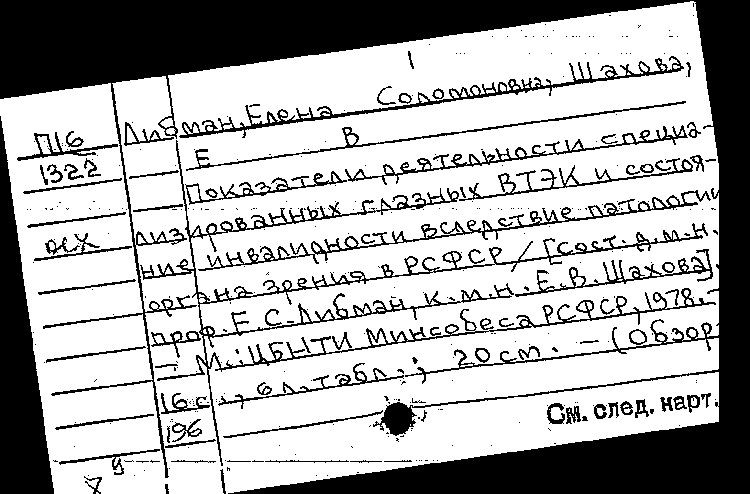 1
П16 Либман, Елена Соломоновна, Шахова,
1322 Е В
Показатели деятельности специа-
осх лизированных глазных ВТЭК и состоя-
ние инвалидности вследствие патологии
органа зрения в РСФСР / [сост. д.м.н.
проф. Е.С. Либман, к.м.н. Е.В. Шахова].
– М.: ЦБНТИ Минсобеса РСФСР, 1978. –
16 с., 6 л. табл.; 20 см. – (Обзор
196
См. след. карт.